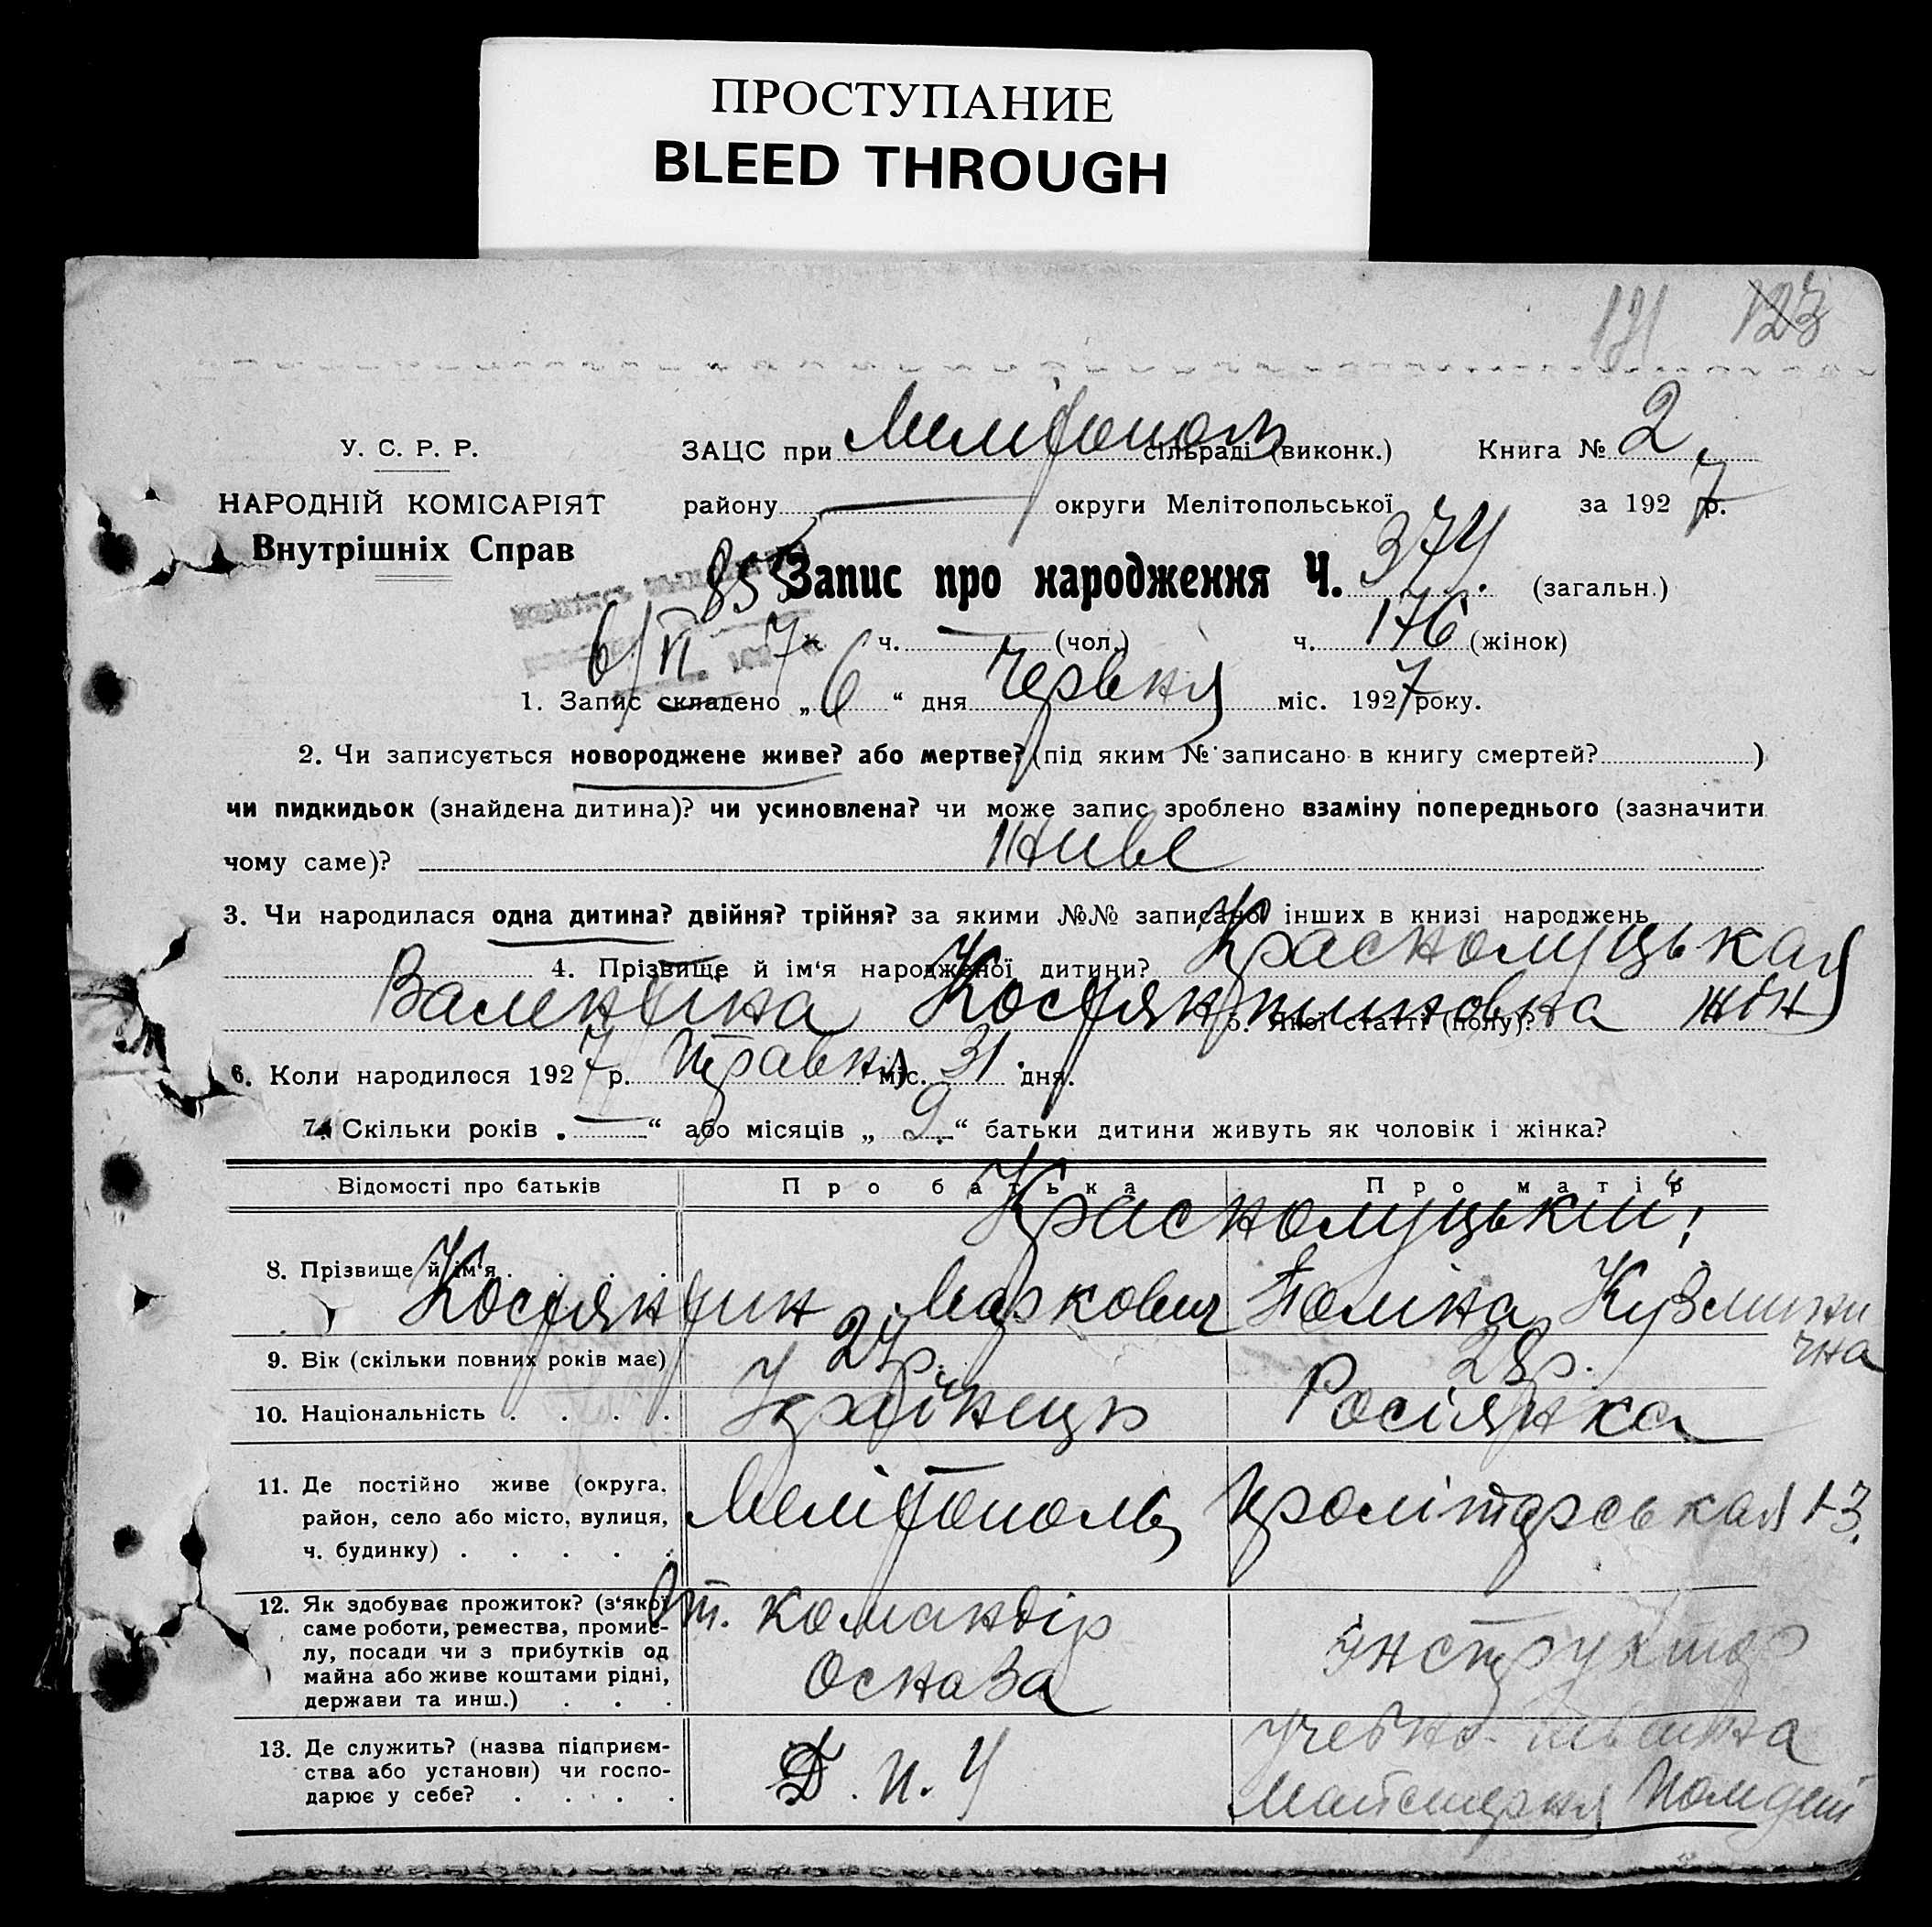 ПРОСТУПАНИЕ
BLEED THROUGH
121 123
У. С. Р. Р.
НАРОДНІЙ КОМІСАРІЯТ
Внутрішніх Справ
ЗАЦС при Мелітополь сільраді (виконк.) Книга № 2
району — округи Мелітопольської за 1927 р.
855 Запис про народження Ч. 374. (загальн.)
6/VI 7 ч. — (чол.) ч. 176 (жінок)
1. Запис складено „6“ дня Червня міс. 1927 року.
2. Чи записується новороджене живе? або мертве? (під яким № записано в книгу смертей? )
чи пидкидьок (знайдена дитина)? чи усиновлена? чи може запис зроблено взаміну попереднього (зазначити
чому саме)? живе
3. Чи народилася одна дитина? двійня? трійня? за якими №№ записано інших в книзі народжень
4. Прізвище й ім'я народженої дитини? Краснолуцькая
Валентина Костянтиновна 5. Якої статті (полу)? жін
6. Коли народилося 1927 р. травня міс. 31 дня.
7. Скільки років „—“ або місяців „9“ батьки дитини живуть як чоловік і жінка?
Відомості про батьків Про батька Про матір
Краснолуцький;
8. Прізвище й ім'я . . . . Костянтин Маркович Поліна Кузмини
чна
9. Вік (скільки повних років має) 24 р. 28 р.
10. Національність . . . . Українець Росіянка
11. Де постійно живе (округа,
район, село або місто, вулиця, Мелітополь Пролітарськая 13.
ч. будинку) . . . . .
12. Як здобуває прожиток? (з'якої
саме роботи, ремества, промис-
лу, посади чи з прибутків од
майна або живе коштами рідні,
держави та инш.) . . .
командір
Осназа
інструктор
13. Де служить? (назва підприєм-
ства або установи) чи госпо-
дарює у себе? . . . .
Д. П. У
учебно- швейна
майстерня Помдет